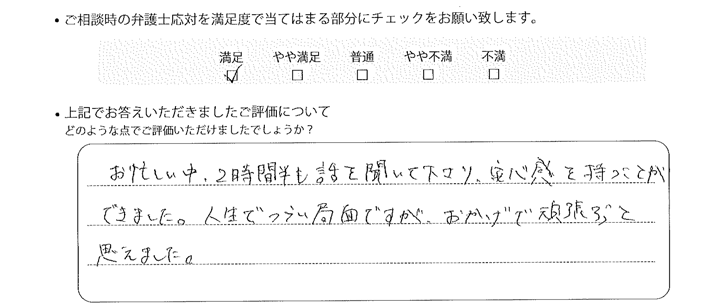 ・ご相談時の弁護士応対を満足度で当てはまる部分にチェックをお願い致します。
満足 やや満足 普通 やや不満 不満
☑ □ □ □ □
・上記でお答えいただきましたご評価について
どのような点でご評価いただけましたでしょうか？
お忙しい中、2時間半も話を聞いて下さり、安心感を持つことが
できました。人生でつらい局面ですが、おかげで頑張ろうと
思えました。